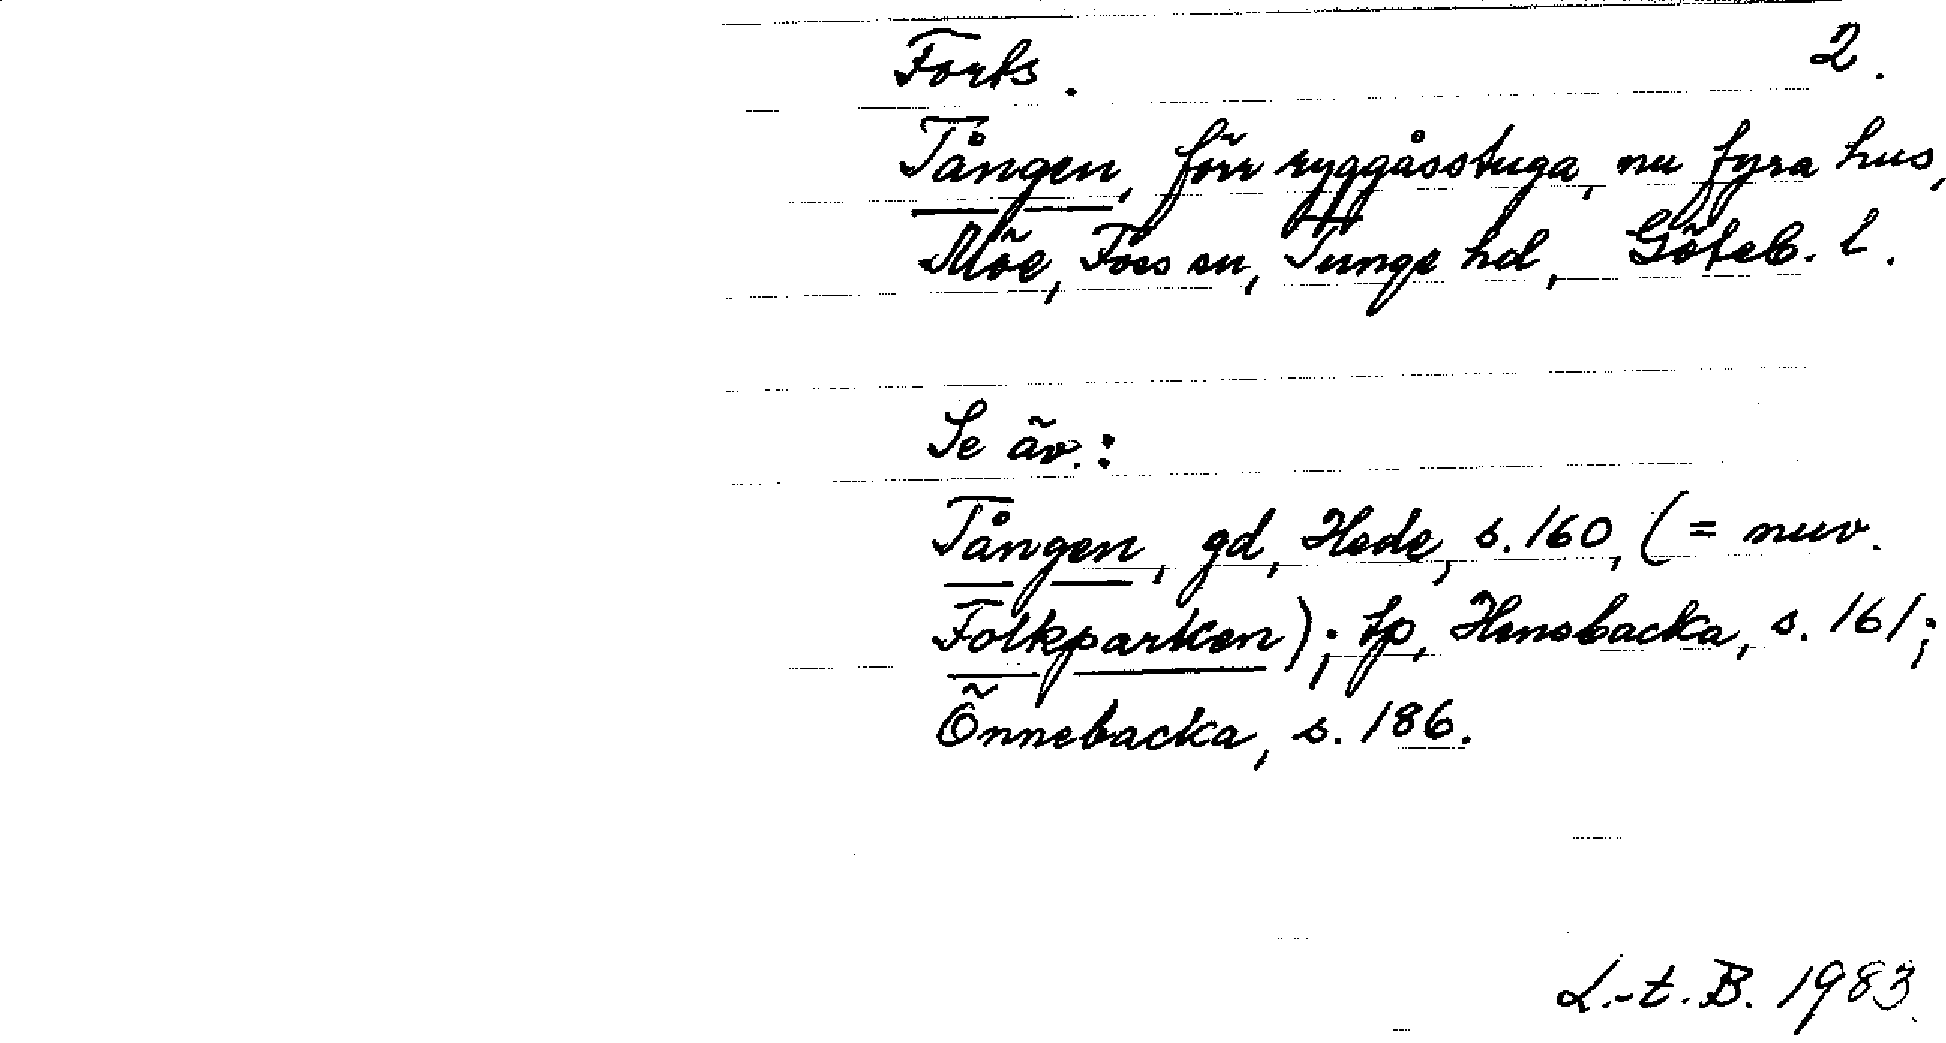 Forts. 2.
Tången, förr ryggåsstuga, nu fyra hus,
Möe, Foss sn, Tunge hd, Göteb. l.
Se äv.:
Tången, gd, Hede, s. 160, (= nuv.
Folkparken); tp, Hensbacka, s. 161;
Önnebacka, s. 186.
L.-t. B. 1983